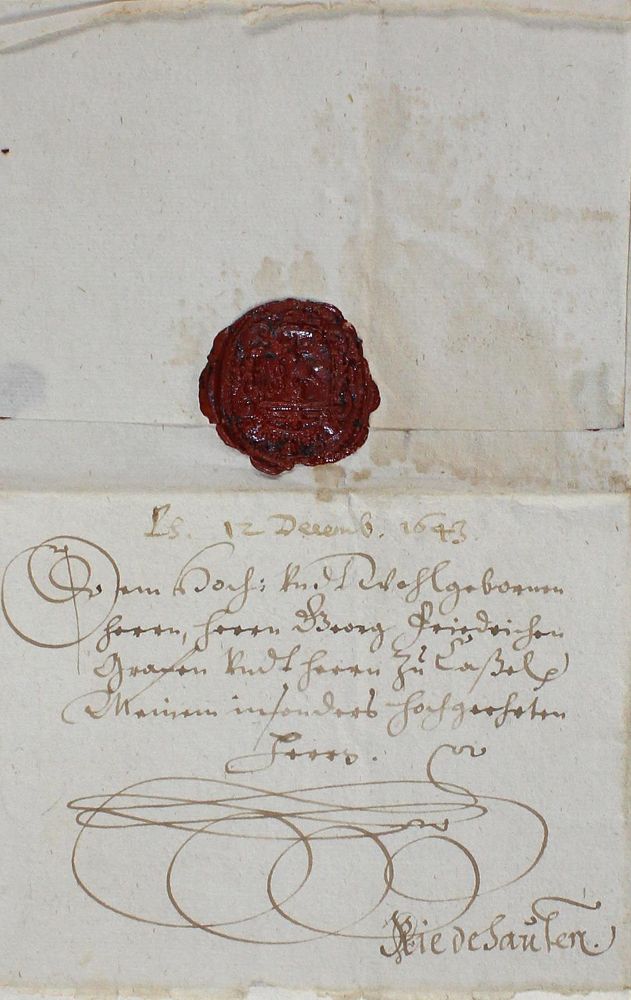 Ps. 12 Decemb. 1643.
Dem Hoch: Vndt Wohlgebornen
Herrn, Herrn Georg Friedrichen
Grafen Vndt Herrn Zu Castell
Meinem insonders hochgeehrten
Herrn.